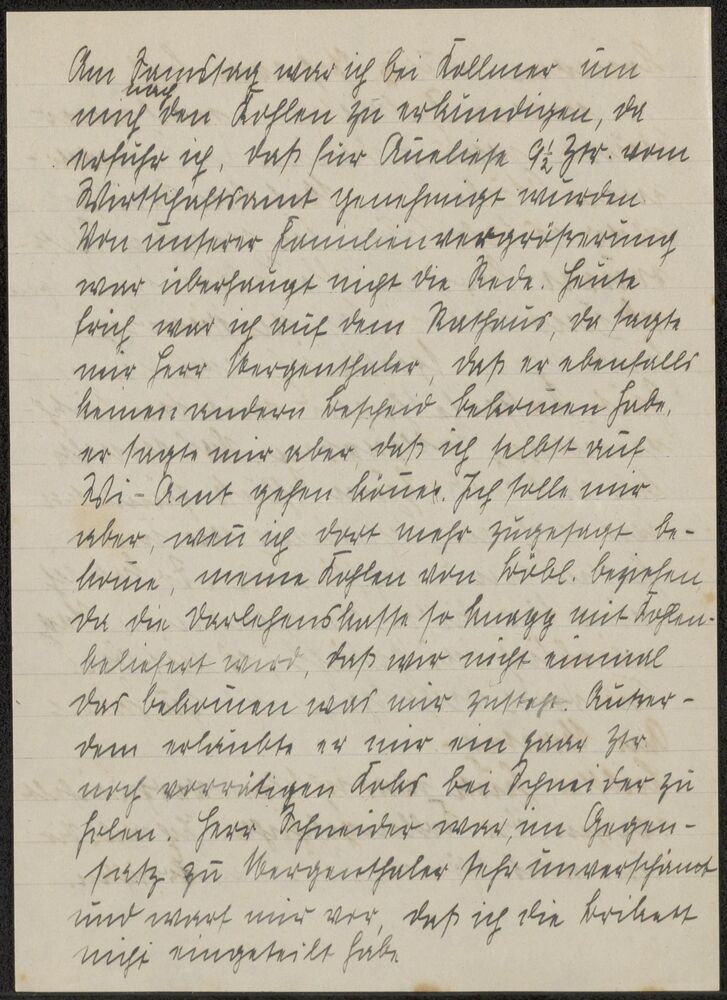 Am Samstag war ich bei Kollmer um
mich nach den Kohlen zu erkundigen, da
erfuhr ich, daß für Aneliese 9½ Ztr. vom
Wirtschaftsamt genehmigt wurden.
Von unserer Familienvergrößerung
war überhaupt nicht die Rede. Heute
früh war ich auf dem Rathaus, da sagte
mir Herr Wergenthaler, daß er ebenfalls
keinen andern Bescheid bekom̅en habe,
er sagte mir aber, daß ich selbst auf
Wi-Amt gehen kön̅e. Ich solle mir
aber, wen̅ ich dort mehr zugesagt be-
kom̅e, meine Kohlen von beziehen
da die Darlehenskasse so knapp mit Kohlen-
beliefert wird, daß wir nicht einmal
das bekom̅en was mir zusteht. Außer-
dem erlaubte er mir ein paar Ztr.
noch vorrätigen Koks bei Schneider zu
holen. Herr Schneider war, im Gegen-
satz zu Wergenthaler sehr unverschämt
und warf mir vor, daß ich die Brikett
nicht eingeteilt habe